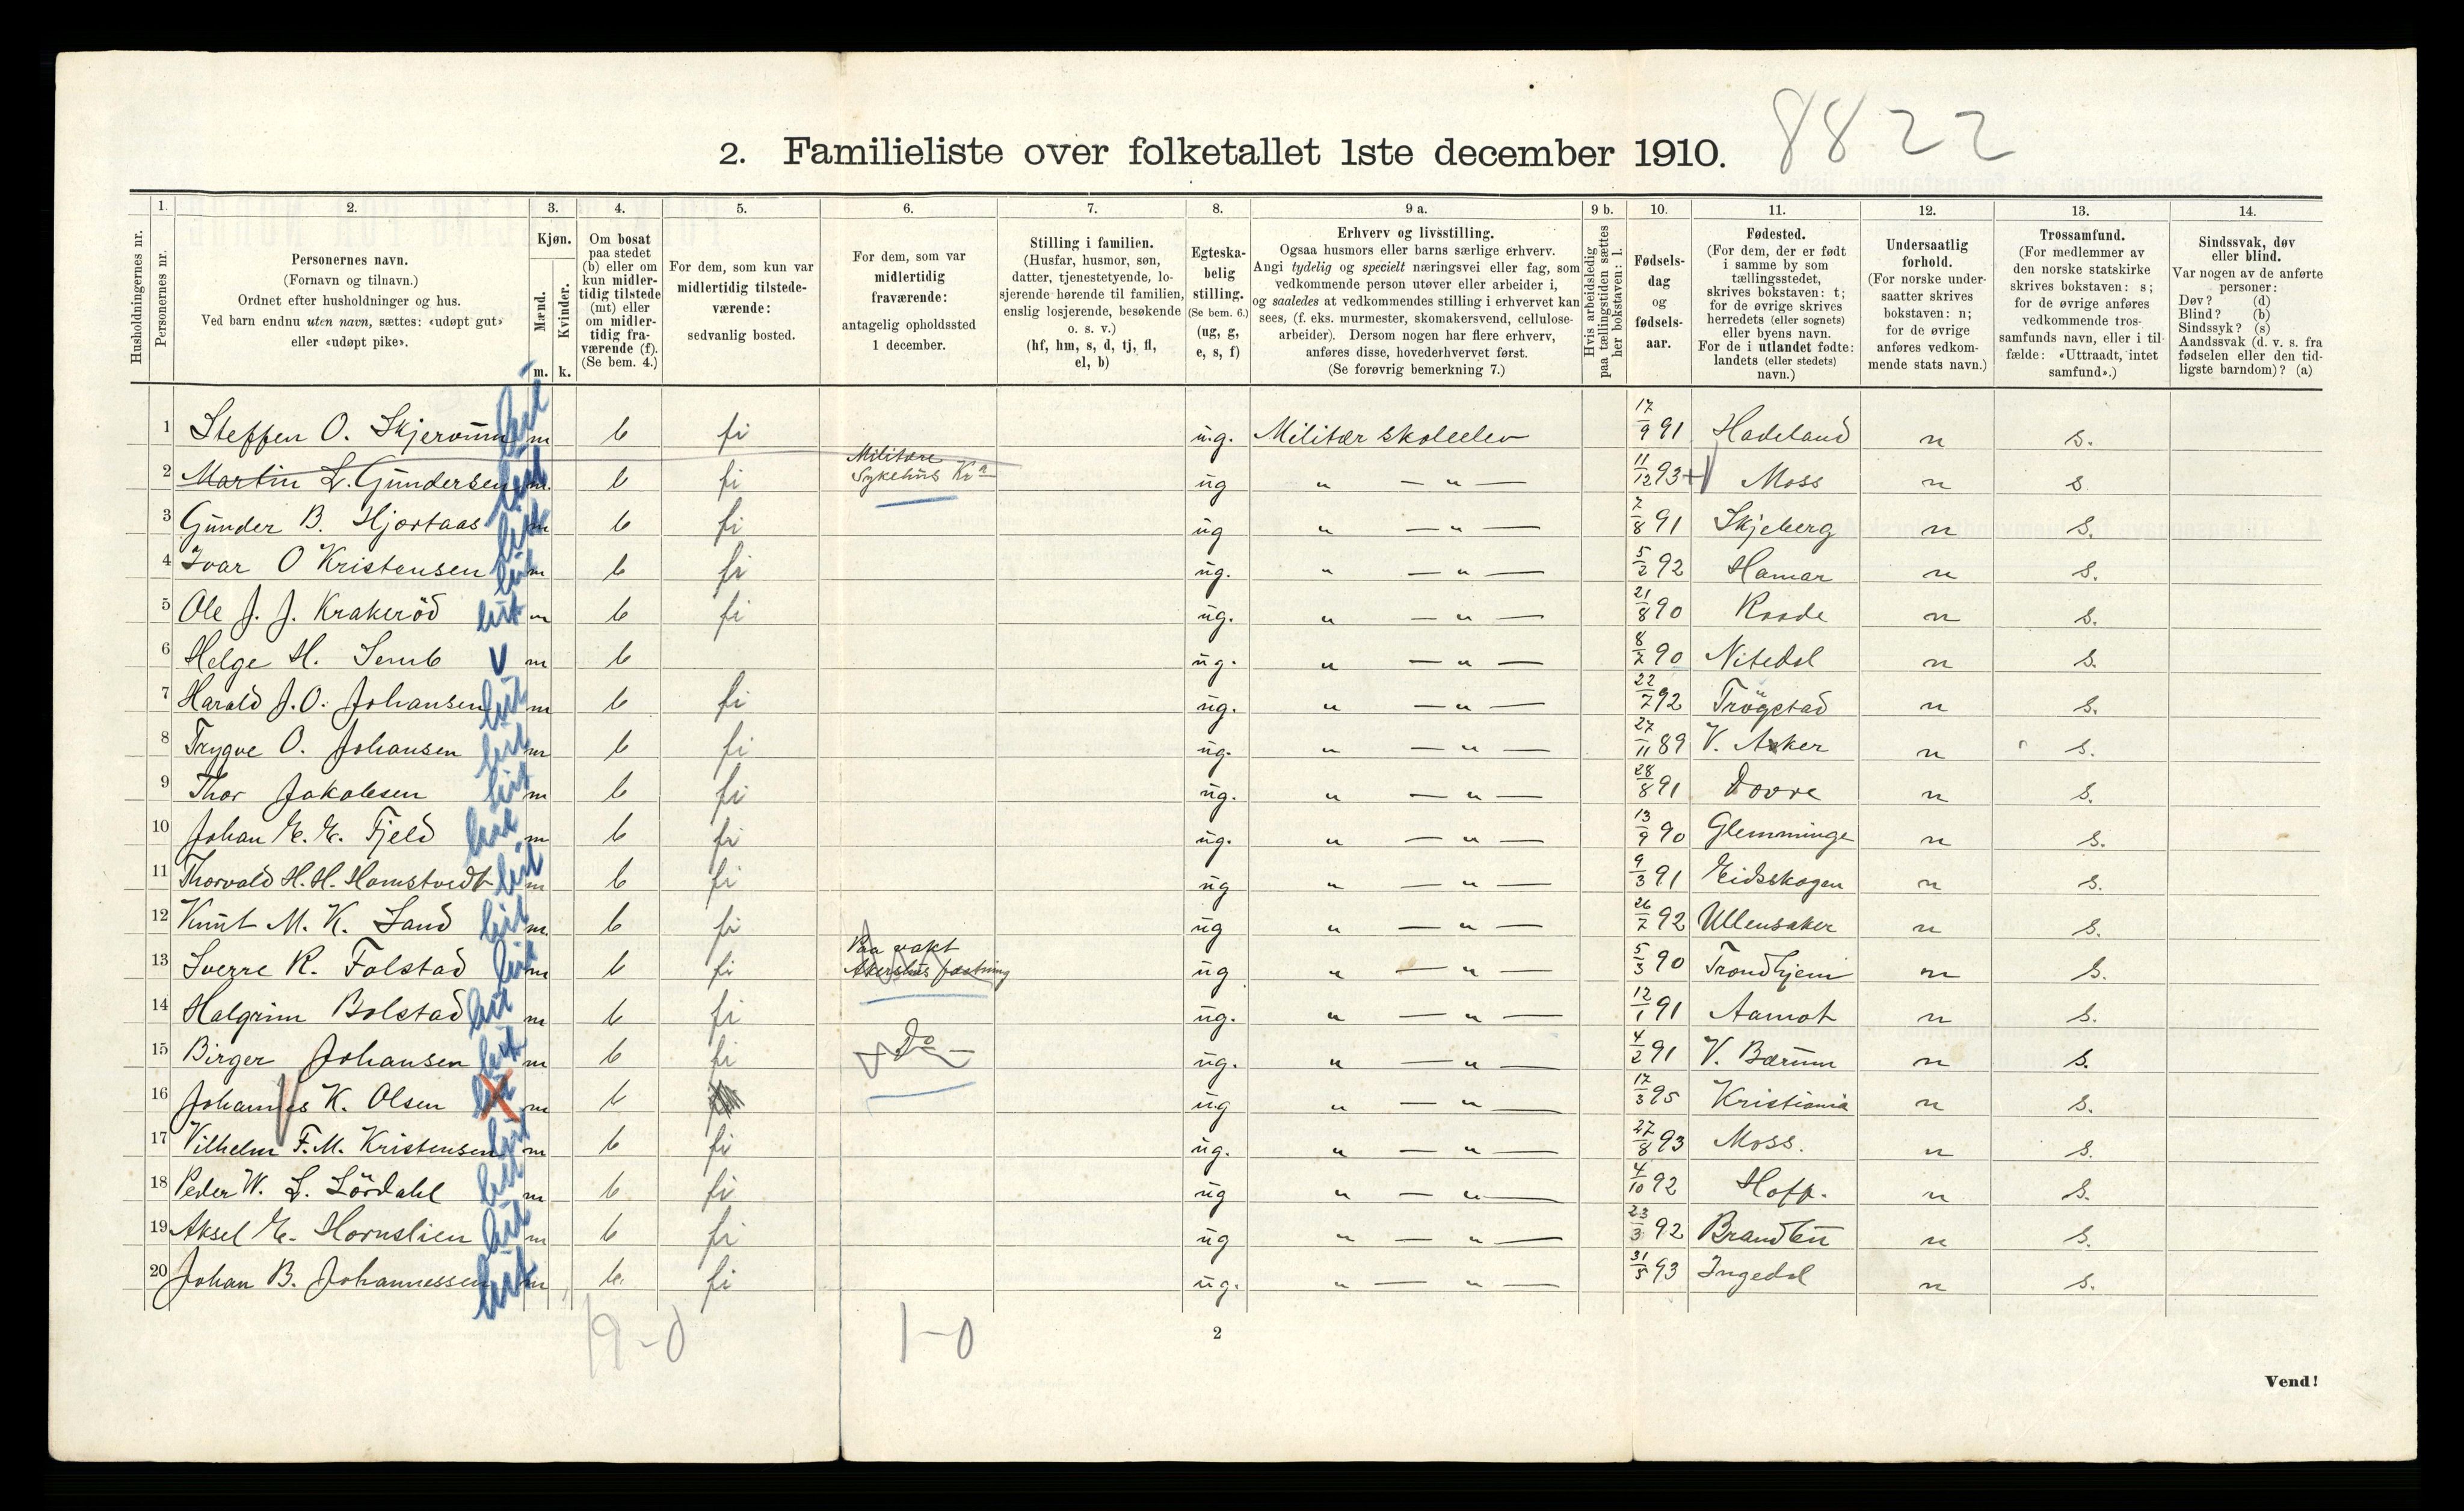 8822
2. Familieliste over folketallet 1ste december 1910.
1. 2. 3. 4. 5. 6. 7. 8. 9 a. 9 b. 10. 11. 12. 13. 14.
Husholdningernes nr.
Personernes nr.
Personernes navn.
(Fornavn og tilnavn.)
Ordnet efter husholdninger og hus.
Ved barn endnu uten navn, sættes: «udøpt gut»
eller «udøpt pike».
Kjøn.
Mænd.
Kvinder.
m. k.
Om bosat
paa stedet
(b) eller om
kun midler-
tidig tilstede
(mt) eller
om midler-
tidig fra-
værende (f).
(Se bem. 4.)
For dem, som kun var
midlertidig tilstede-
værende:
sedvanlig bosted.
For dem, som var
midlertidig
fraværende:
antagelig opholdssted
1 december.
Stilling i familien.
(Husfar, husmor, søn,
datter, tjenestetyende, lo-
sjerende hørende til familien,
enslig losjerende, besøkende
o. s. v.)
(hf, hm, s, d, tj, fl,
el, b)
Egteska-
belig
stilling.
(Se bem. 6.)
(ug, g,
e, s, f)
Erhverv og livsstilling.
Ogsaa husmors eller barns særlige erhverv.
Angi tydelig og specielt næringsvei eller fag, som
vedkommende person utøver eller arbeider i,
og saaledes at vedkommendes stilling i erhvervet kan
sees, (f. eks. murmester, skomakersvend, cellulose-
arbeider). Dersom nogen har flere erhverv,
anføres disse, hovederhvervet først.
(Se forøvrig bemerkning 7.)
Hvis arbeidsledig
paa tællingstiden sættes
her bokstaven: l.
Fødsels-
dag
og
fødsels-
aar.
Fødested.
(For dem, der er født
i samme by som
tællingsstedet,
skrives bokstaven: t;
for de øvrige skrives
herredets (eller sognets)
eller byens navn.
For de i utlandet fødte:
landets (eller stedets)
navn.)
Undersaatlig
forhold.
(For norske under-
saatter skrives
bokstaven: n;
for de øvrige
anføres vedkom-
mende stats navn.)
Trossamfund.
(For medlemmer av
den norske statskirke
skrives bokstaven: s;
for de øvrige anføres
vedkommende tros-
samfunds navn, eller i til-
fælde: «Uttraadt, intet
samfund».)
Sindssvak, døv
eller blind.
Var nogen av de anførte
personer:
Døv? (d)
Blind? (b)
Sindssyk? (s)
Aandssvak (d. v. s. fra
fødselen eller den tid-
ligste barndom)? (a)
1 Steffen O. Skjervum m b fi ug. Militær skoleelev 17/9 91 Hadeland n s.
2 Martin L. Gundersen m. b fi Militære Sykehus Kia ug " — " — 11/12 93 + Moss n s
3 Gunder B. Hjortaas m b fi ug " — " — 7/8 91 Skjeberg n s.
4 Ivar O Kristensen m b fi ug. " — " — 5/2 92 Hamar n s.
5 Ole J. J. Krakeröd m b fi ug. " — " — 21/8 90 Raade n s.
6 Helge H. Semb V m b ug. " — " — 8/7 90 Nitedal n s.
7 Harald J. O. Johansen m b fi ug. " — " — 22/7 92 Trögstad n s.
8 Trygve O. Johansen m b fi ug. " — " — 27/11 89 V. Aker n s.
9 Thor Jakobsen m b fi ug. " — " — 28/8 91 Dovre n s.
10 Johan E. E. Fjeld m b fi ug. " — " — 13/9 90 Glemminge n s.
11 Thorvald H. H. Homstvedt m b fi ug " — " — 9/3 91 Eidsskogen n s.
12 Knut M. K. Sand m. b fi ug " — " — 26/7 92 Ullensaker n s.
13 Sverre R. Folstad m b fi Paa vakt Akershus fæstning ug " — " — 5/3 90 Trondhjem n s.
14 Halgrim Bolstad m b fi ug. " — " — 12/1 91 Aamot n s.
15 Birger Johansen m b fi — Do — ug. " — " — 4/2 91 V. Bærum n s.
16 Johannes K. Olsen m b ug " — " — 17/3 95 Kristiania n s.
17 Vilhelm F. M. Kristensen m b fi ug. " — " — 27/8 93 Moss. n s.
18 Peder W. L. Lördahl m b fi ug " — " — 4/10 92 Hoff. n s.
19 Aksel E. Hornslien m b fi ug " — " — 23/3 92 Brandbu n s.
20 Johan B. Johannessen m b. fi ug. " — " — 31/5 93 Ingedal n s.
19-0 1-0
2
Vend!